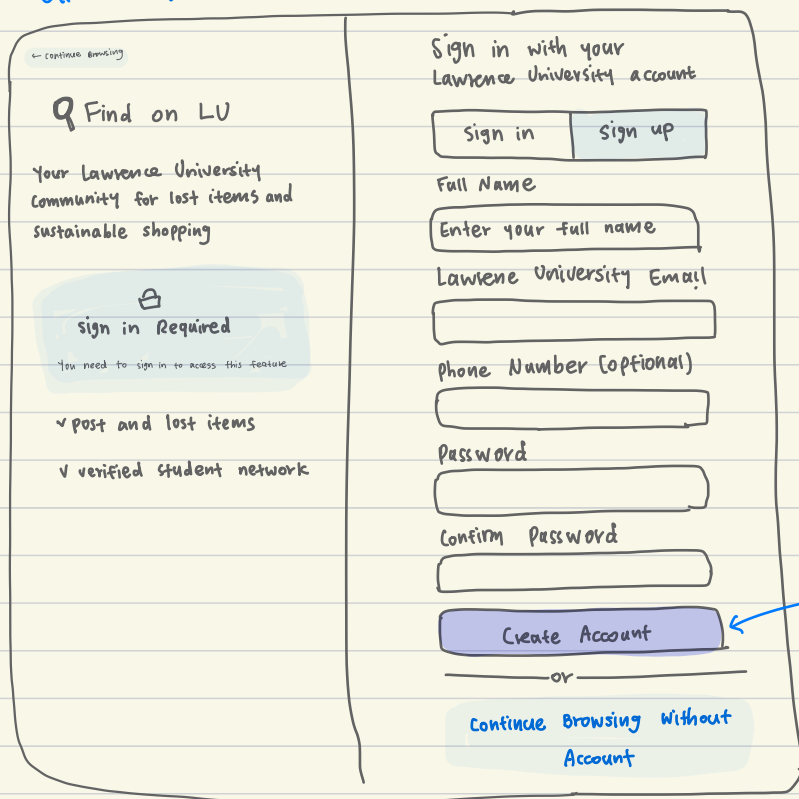 ← Continue Browsing
Find on LU
Your Lawrence University
Community for lost items and
sustainable shopping
sign in Required
You need to sign in to access this feature
✓ post and lost items
✓ verified student network
Sign in with your
Lawrence University account
Sign in
Sign up
Full Name
Enter your full name
Lawrene University Email
Phone Number (optional)
Password
Confirm Password
Create Account
or
Continue Browsing Without
Account